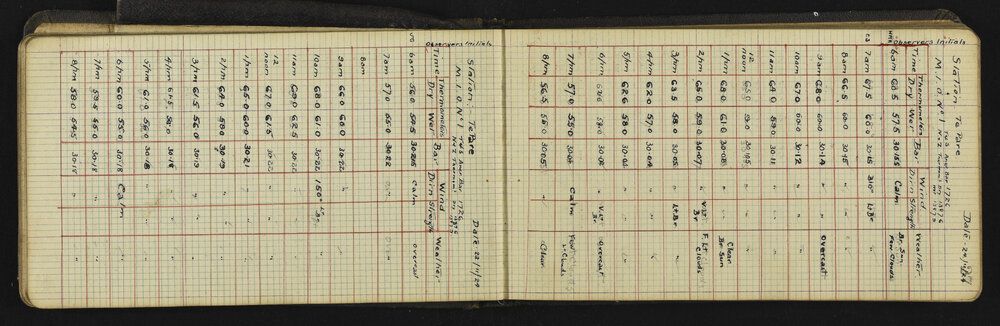 Station: Te Pare Date
M.I.O. No 1 Bar 1726
Time Thermometers Bar Wind Weather
Dry Wet Dirn Strength
Observers Initials
6am 63.5 57.5 30.155 Calm Br. Sun. Few Clouds
7am 67.5 60.0 30.15 310° Lt Br
8am 66.5 60.0 30.15 " "
9am 68.0 60.0 30.14 " " Overcast
10am 67.0 60.0 30.12 " " "
11am 64.0 59.0 30.11 " " "
12 noon 65.0 59.0 30.09 " " "
1pm 68.0 61.0 30.08 " " Clear Br Sun
2pm 65.0 59.0 30.07 " V.Lt Br F. Lt Clouds
3pm 63.5 58.0 30.05 " Lt.Br "
4pm 62.0 57.0 30.04 " " "
5pm 62.6 58.0 30.04 " " "
6pm 58.0 30.05 " V.Lt Br Overcast
7pm 57.0 55.0 30.05 Calm Few Lt Clouds
8pm 56.5 55.0 30.05 " Clear
Station: Te Pare Date 22/11/29
M.I.O. No 1 Bar. 1726
Time Thermometers Bar Wind Weather
Dry Wet Dirn Strength
Observers Initials
6am 56.0 54.5 30.205 Calm Overcast
7am 57.0 55.0 30.22 " "
8am
9am 66.0 60.0 30.22 " "
10am 68.0 61.0 30.22 150° Lt Br. "
11am 62.5 30.22 " " "
12 noon 67.0 61.5 30.22 " " "
1pm 64.0 60.0 30.21 " " "
2pm 64.0 58.0 30.19 " " "
3pm 61.5 56.0 30.19 " " "
4pm 61.5 56.0 30.18 " " "
5pm 61.0 56.0 30.18 " " "
6pm 60.0 55.0 30.18 Calm "
7pm 58.5 55.0 30.18 " "
8pm 58.0 54.5 30.18 " "